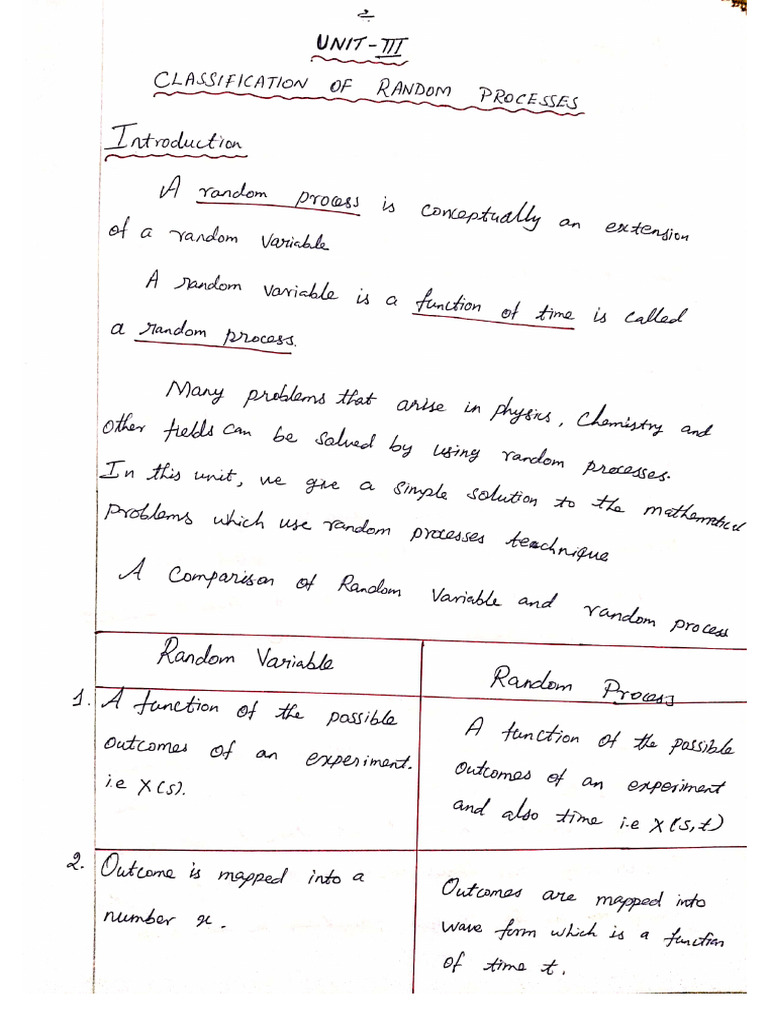 2
UNIT-III
CLASSIFICATION OF RANDOM PROCESSES
Introduction
A random process is conceptually an extension
of a random variable
A random variable is a function of time is called
a random process.
Many problems that arise in physics, Chemistry and
other fields can be solved by using random processes.
In this unit, we give a simple solution to the mathematical
problems which use random processes technique
A Comparison of Random Variable and random process
Random Variable
Random Process
1. A function of the possible
outcomes of an experiment.
i.e X(s).
A function of the possible
outcomes of an experiment
and also time i.e X(s,t)
2. Outcome is mapped into a
number x.
Outcomes are mapped into
wave form which is a function
of time t.